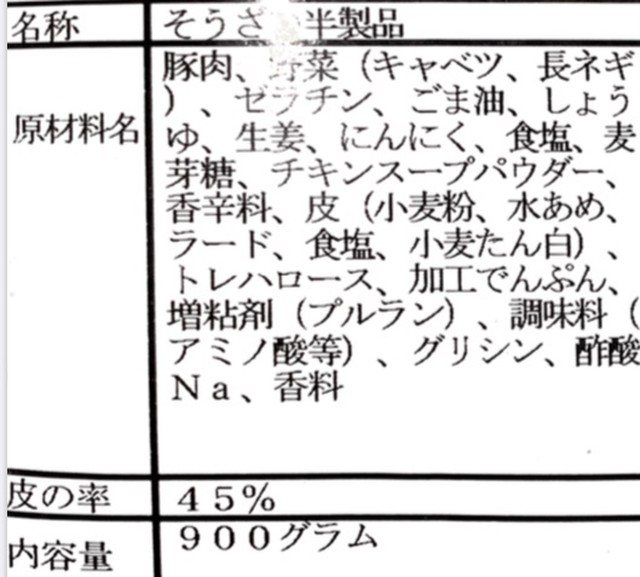 名称
そうざ 半製品
原材料名
豚肉、野菜（キャベツ、長ネギ
）、ゼラチン、ごま油、しょう
ゆ、生姜、にんにく、食塩、麦
芽糖、チキンスープパウダー、
香辛料、皮（小麦粉、水あめ、
ラード、食塩、小麦たん白）、
トレハロース、加工でんぷん、
増粘剤（プルラン）、調味料（
アミノ酸等）、グリシン、酢酸
Ｎａ、香料
皮の率
４５％
内容量
９００グラム